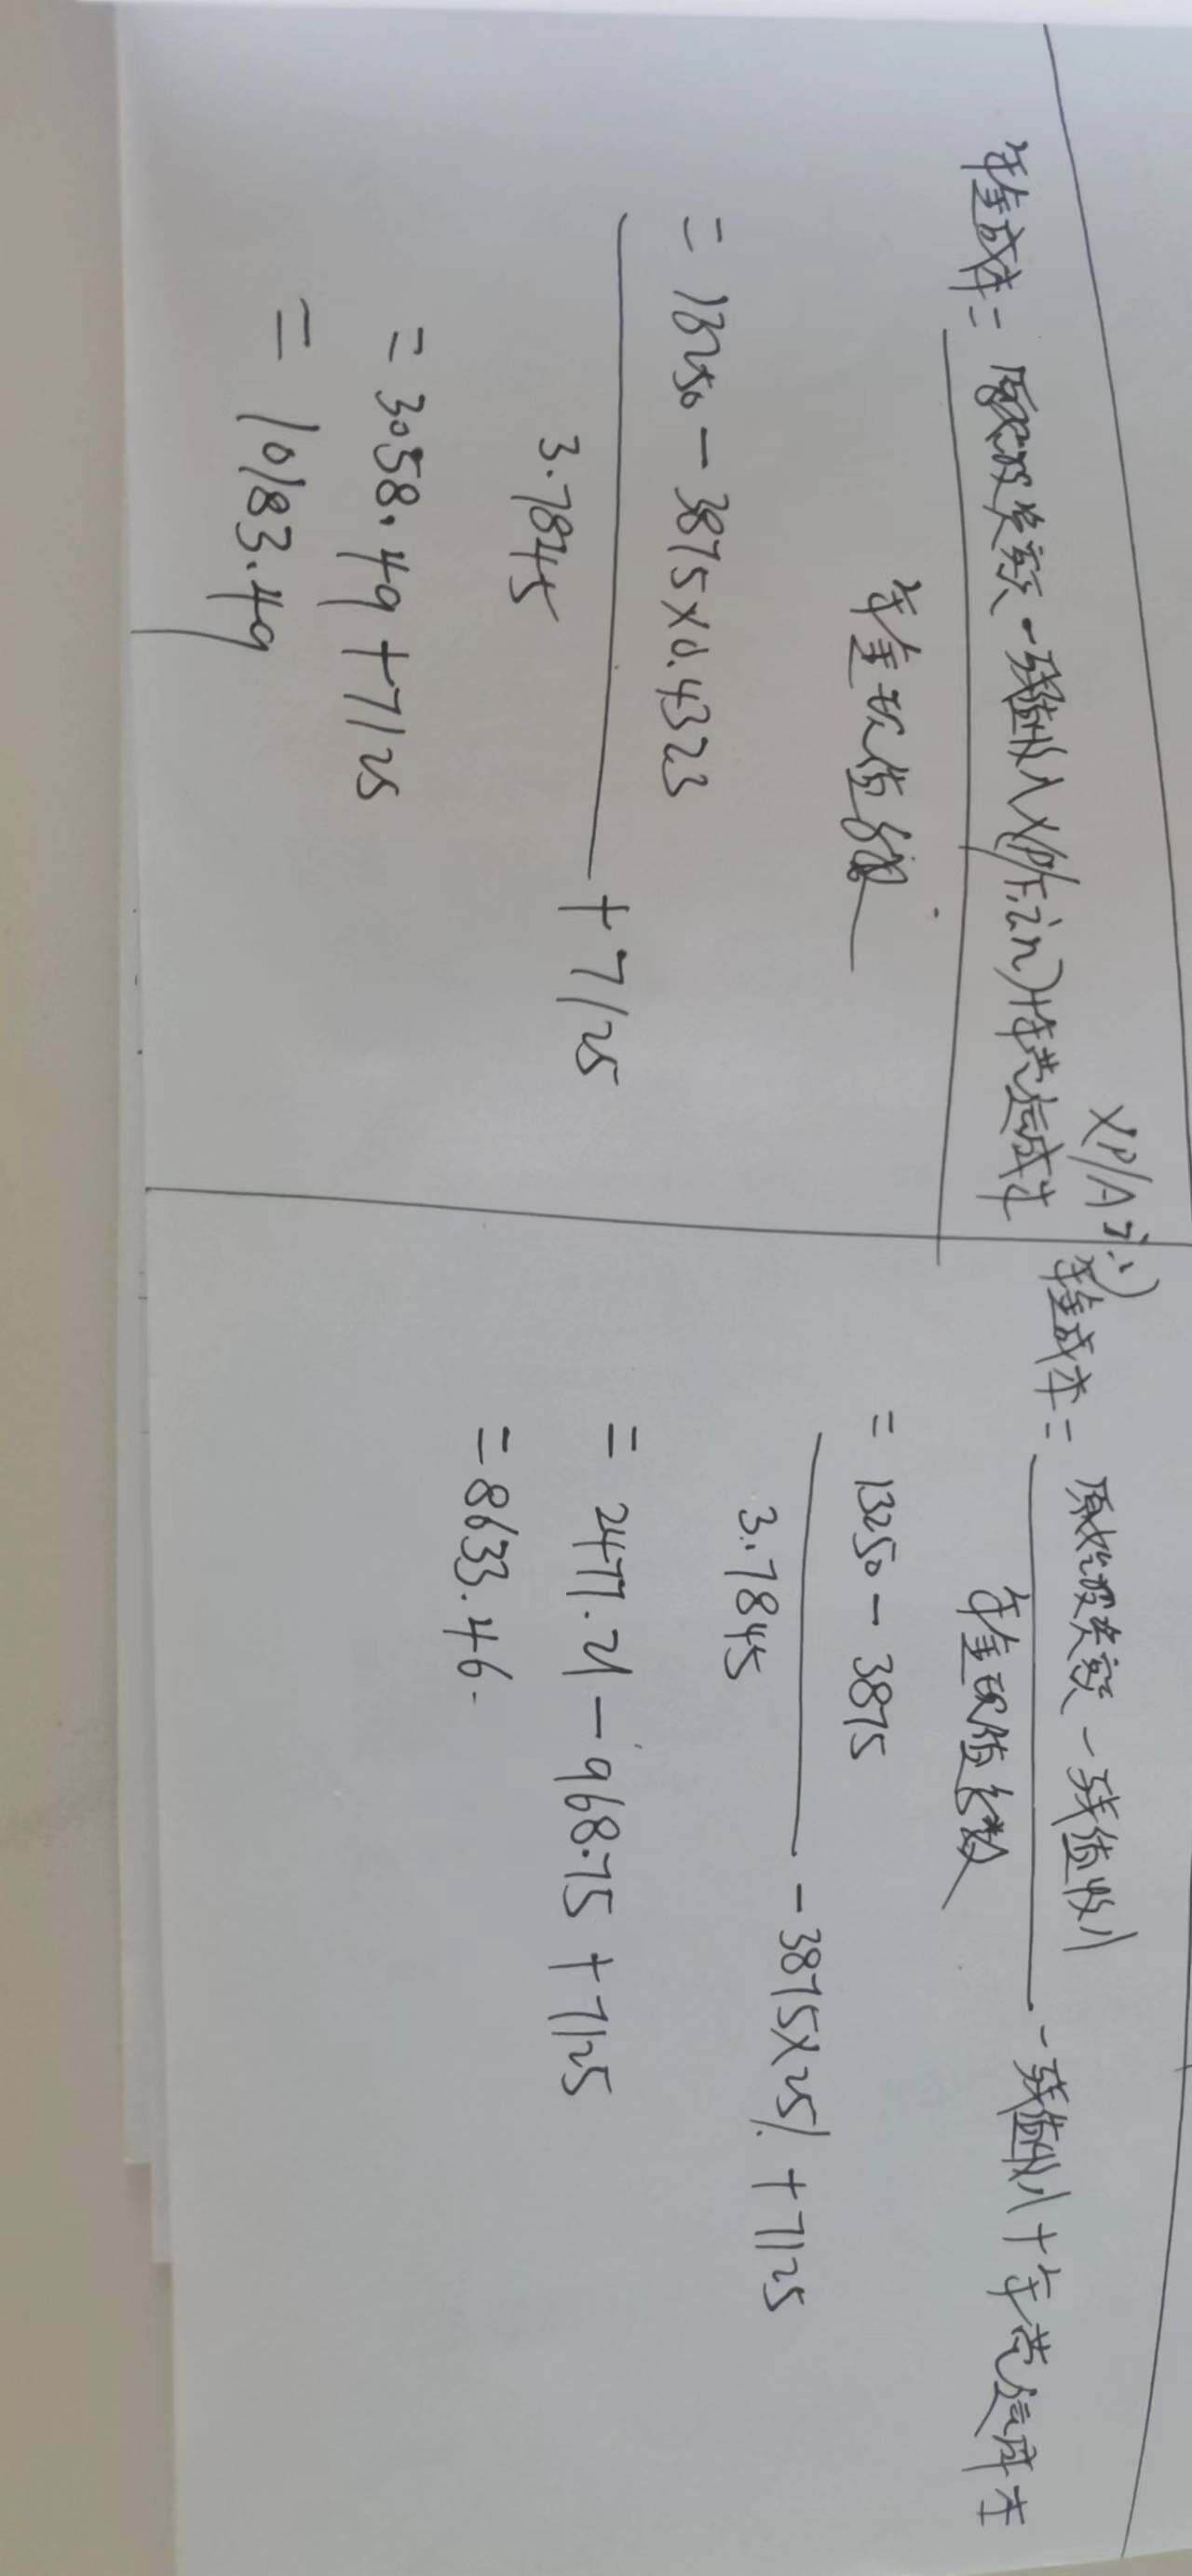 ×(P/A,i,n)
年金成本= 原始投资额-残值收入×(P/F,i,n)+年营运成本
年金现值系数
= 13250-3875×0.4323
3.7845
+7125
= 3058.49+7125
= 10183.49
年金成本= 原始投资额-残值收入
年金现值系数
-残值收入+年营运成本
= 13250-3875
3.7845
-3875×25%+7125
= 2477.21-968.75+7125
=8633.46.